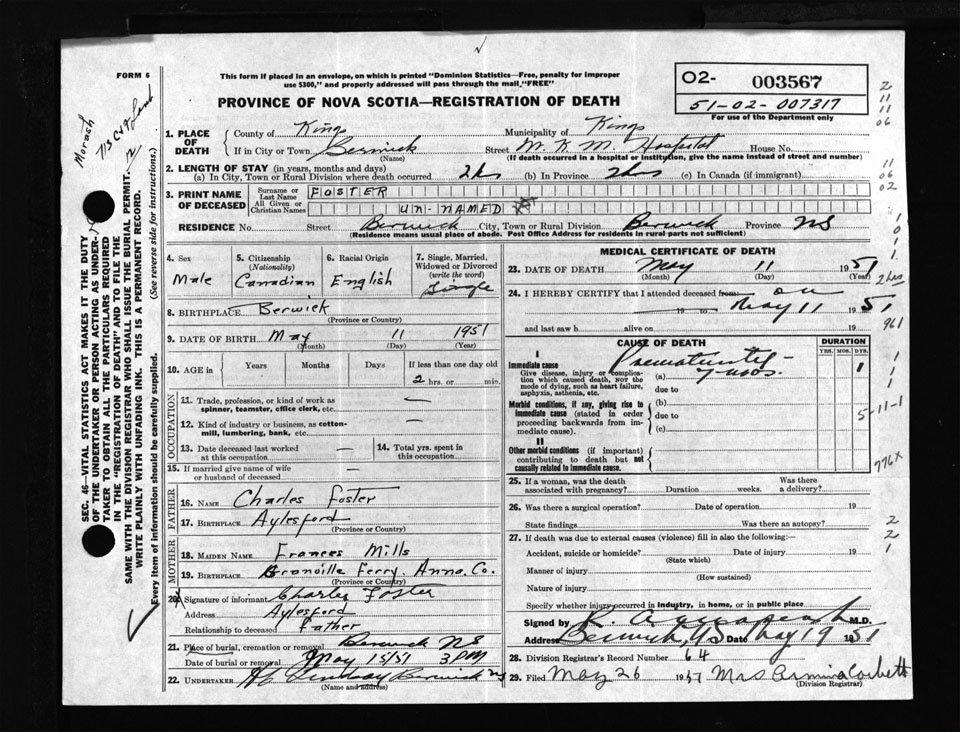 FORM 6
This form if placed in an envelope, on which is printed "Dominion Statistics—Free, penalty for improper
use $300," and properly addressed will pass through the mail "FREE"
PROVINCE OF NOVA SCOTIA—REGISTRATION OF DEATH
O2- 003567
51-02-007317
For use of the Department only
Morash
SEC. 46—VITAL STATISTICS ACT MAKES IT THE DUTY
OF THE UNDERTAKER OR PERSON ACTING AS UNDER-
TAKER TO OBTAIN ALL THE PARTICULARS REQUIRED
IN THE "REGISTRATION OF DEATH" AND TO FILE THE
SAME WITH THE DIVISION REGISTRAR WHO SHALL ISSUE THE BURIAL PERMIT.
WRITE PLAINLY WITH UNFADING INK. THIS IS A PERMANENT RECORD.
Every item of information should be carefully supplied. (See reverse side for instructions.)
1. PLACE OF DEATH
County of Kings Municipality of Kings
If in City or Town Berwick Street W. K. M. Hospital House No.
(Name) (If death occurred in a hospital or institution, give the name instead of street and number)
2. LENGTH OF STAY (in years, months and days)
(a) In City, Town or Rural Division where death occurred 2 hrs (b) In Province 2 hrs (c) In Canada (if immigrant)
3. PRINT NAME OF DECEASED
Surname or Last Name FOSTER
All Given or Christian Names UN-NAMED
RESIDENCE No. Street Berwick City, Town or Rural Division Berwick Province NS
(Residence means usual place of abode. Post Office Address for residents in rural parts not sufficient)
4. Sex Male
5. Citizenship (Nationality) Canadian
6. Racial Origin English
7. Single, Married, Widowed or Divorced (write the word) Single
8. BIRTHPLACE Berwick
(Province or Country)
9. DATE OF BIRTH May 11 1951
(Month) (Day) (Year)
10. AGE in Years Months Days If less than one day old
2 hrs. or min.
OCCUPATION
11. Trade, profession, or kind of work as spinner, teamster, office clerk, etc. —
12. Kind of industry or business, as cotton-mill, lumbering, bank, etc. —
13. Date deceased last worked at this occupation —
14. Total yrs. spent in this occupation
15. If married give name of wife or husband of deceased —
FATHER
16. NAME Charles Foster
17. BIRTHPLACE Aylesford
(Province or Country)
MOTHER
18. MAIDEN NAME Frances Mills
19. BIRTHPLACE Granville Ferry, Anna. Co.
(Province or Country)
20. Signature of informant Charles Foster
Address Aylesford
Relationship to deceased Father
21. Place of burial, cremation or removal Berwick NS
Date of burial or removal May 15/51 3 PM
22. UNDERTAKER Lindsay Berwick NS
(Name and address)
MEDICAL CERTIFICATE OF DEATH
23. DATE OF DEATH May 11 1951
(Month) (Day) (Year)
24. I HEREBY CERTIFY that I attended deceased from on
19 to May 11 1951
and last saw h alive on 19
CAUSE OF DEATH
DURATION
YRS. MOS. DYS.
I
Immediate cause
Give disease, injury or complication which caused death, NOT the mode of dying, such as heart failure, asphyxia, asthenia, etc.
(a) Prematurity - 7 mos. 1
due to
Morbid conditions, if any, giving rise to immediate cause (stated in order proceeding backwards from immediate cause).
(b)
due to
(c)
II
Other morbid conditions (if important) contributing to death but not causally related to immediate cause.
25. If a woman, was the death associated with pregnancy? Duration weeks. Was there a delivery?
26. Was there a surgical operation? Date of operation 19
State findings Was there an autopsy?
27. If death was due to external causes (violence) fill in also the following:—
Accident, suicide or homicide? Date of injury 19
(State which)
Manner of injury
(How sustained)
Nature of injury
Specify whether injury occurred in industry, in home, or in public place
Signed by M.D.
Address Berwick, NS Date May 19 1951
28. Division Registrar's Record Number 64
29. Filed May 26 1951 Mrs Armina Corbett
(Division Registrar)
2
11
11
06
11
06
02
1
0
1
1
2 hrs
1
961
1
1
1
5-11-1
776X
2
2
1